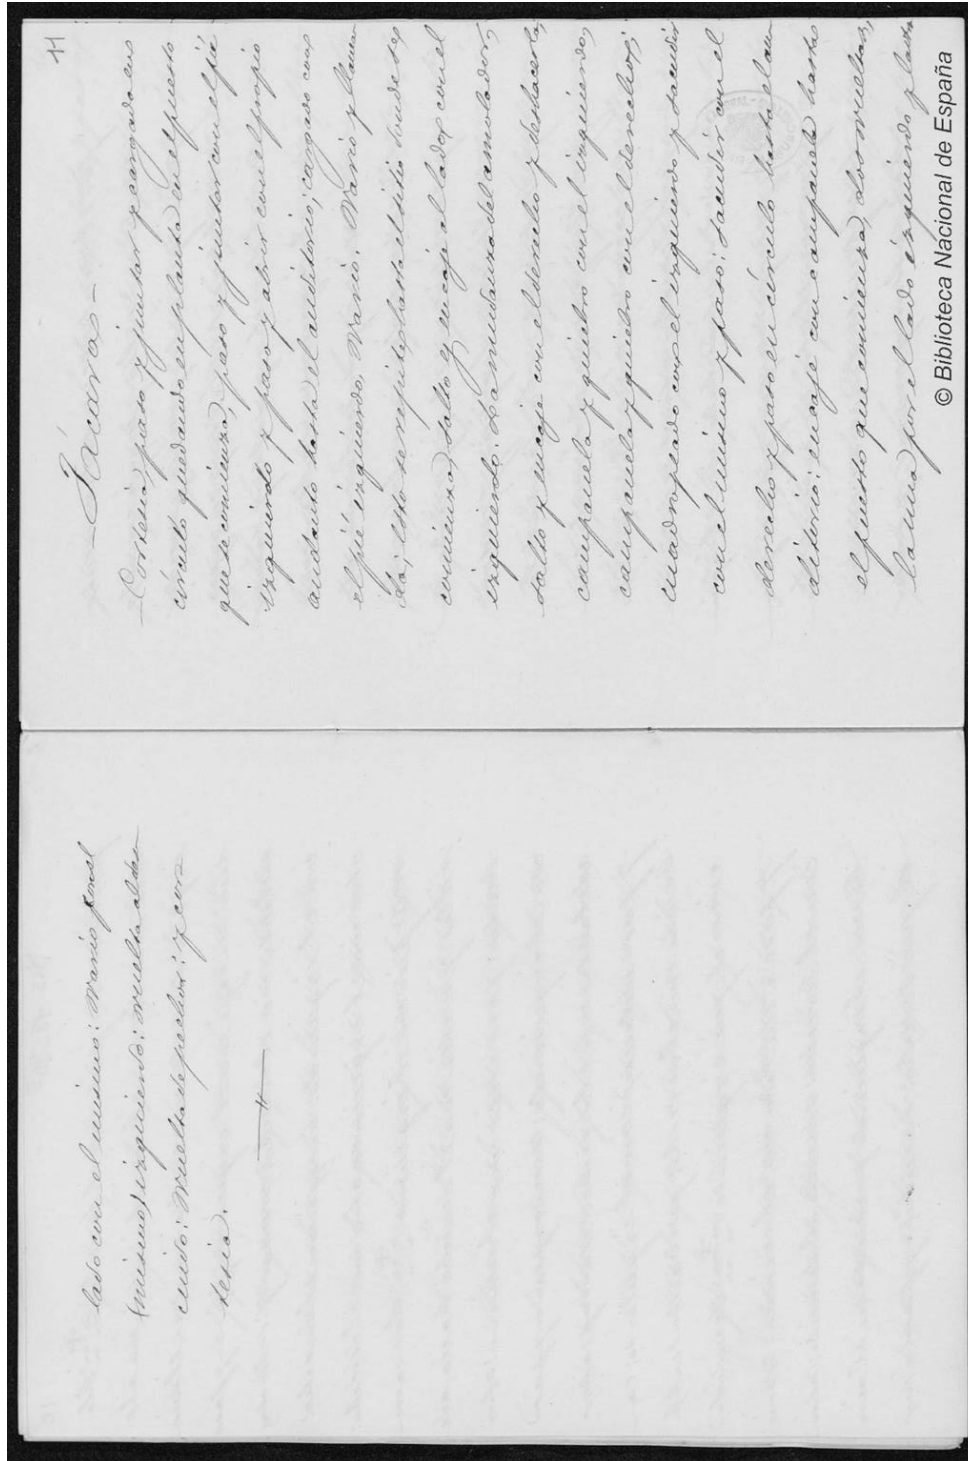 lado con el mismo: Vacío con el
(mismo) izquierdo: vuelta al des-
cuido: Vuelta de pechos: y cor-
tesía.
11
—Jácara—
—Cortesía, paso y juntar y cargado en
círculo quedando en planta en el puesto
que se comienza, paso y juntar con el pié
izquierdo y paso y abrir con el propio
andando hasta el auditorio; cargado con
el pié izquierdo, Vacío. Vacío y llama-
da; esto se repite hasta el sitio donde se
comienza, salto y encaje al lado con el
izquierdo: La mudanza del amolador,
salto y encaje con el derecho y deshacerla,
campanela y quiebro con el izquierdo,
campanela y quiebro con el derecho;
cuadropeado con el izquierdo y sacudir
con el mismo y paso: sacudir con el
derecho y paso en círculo hasta el au-
ditorio: encaje con campanela hasta
el puesto que comienza, dos vueltas,
la una por el lado izquierdo y planta
© Biblioteca Nacional de España